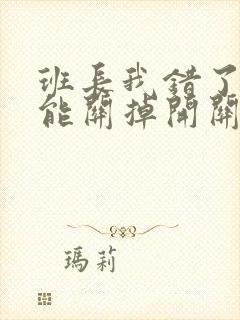 班长我错了
能關掉開關
瑪莉